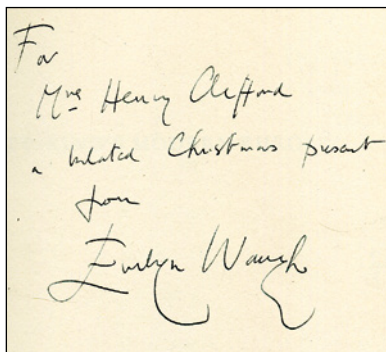 For
Mrs Henry Clifford
a belated Christmas present
from
Evelyn Waugh